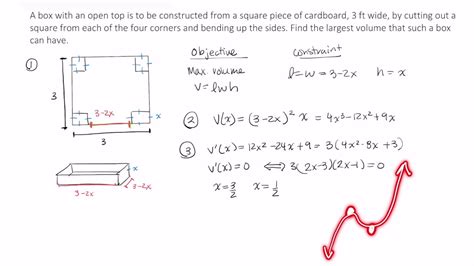 A box with an open top is to be constructed from a square piece of cardboard, 3 ft wide, by cutting out a
square from each of the four corners and bending up the sides. Find the largest volume that such a box
can have.
Objective
constraint
①
Max. volume
l=w=3-2x h=x
V=lwh
3
3-2x
x
3
② V(x)=(3-2x)²x = 4x³-12x²+9x
③ V'(x)=12x²-24x+9 = 3(4x²-8x+3)
V'(x)=0 ⟺ 3(2x-3)(2x-1)=0
x=3/2 x=1/2
x
3-2x
3-2x